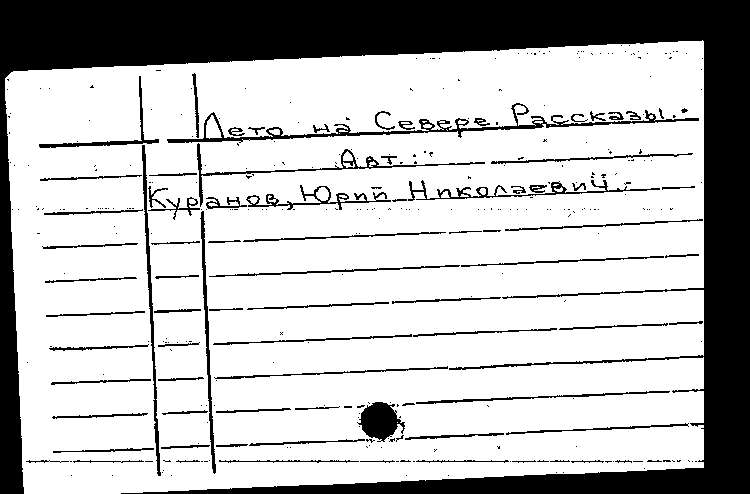 Лето на Севере. Рассказы.
Авт.:
Куранов, Юрий Николаевич.